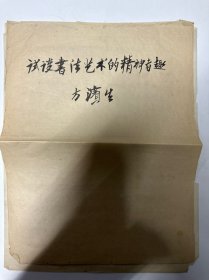 试谈书法艺术的精神旨趣
方濱生